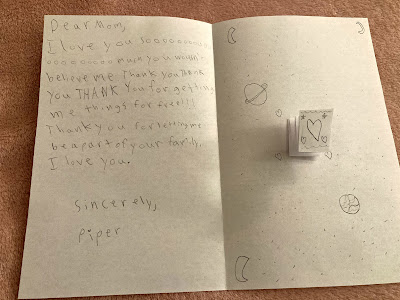 Dear Mom,
I love you sooooooooooo
oooooooooo much you wouldn't
believe me. Thank you THANK
you THANK You for getting
me things for free!!!
Thank you for letting me
be a part of your family.
I love you.
Sincerely,
Piper